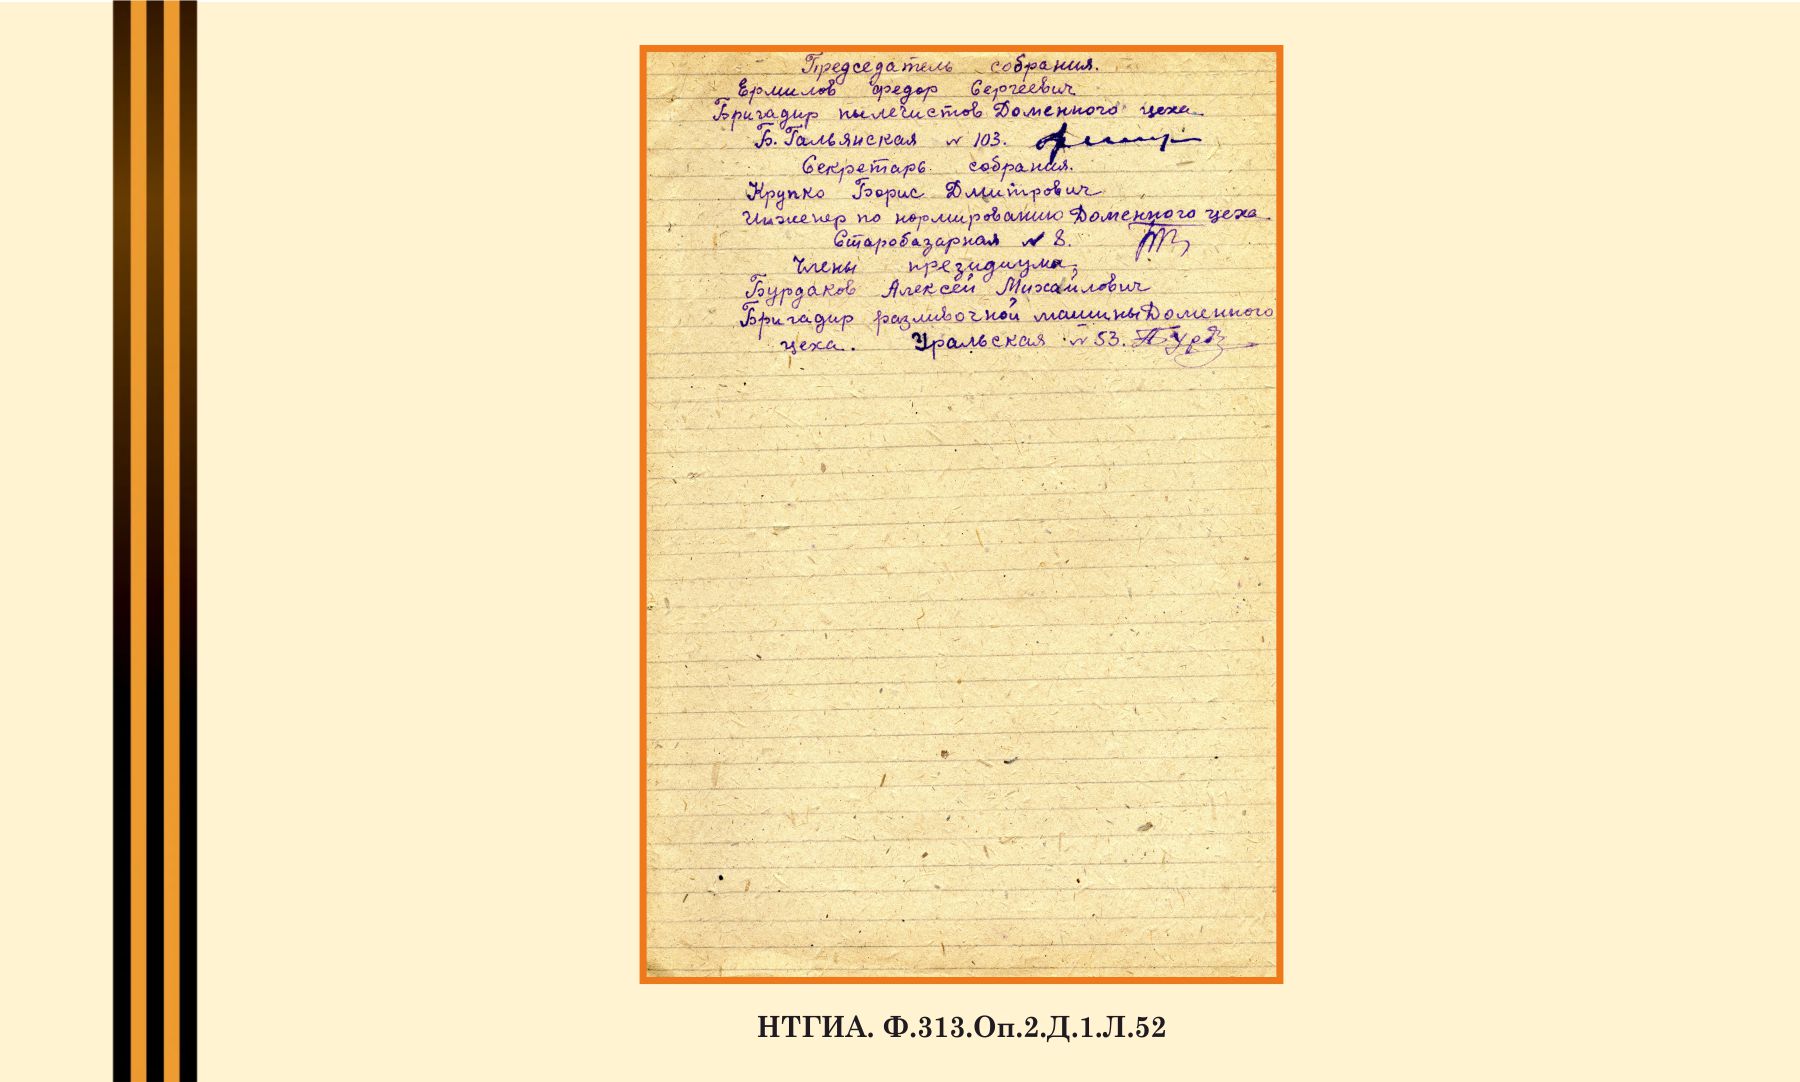 Председатель собрания.
Ермилов Федор Сергеевич
Бригадир пылечистов Доменного цеха
Б. Гальянская № 103.
Секретарь собрания.
Крупко Борис Дмитрович
Инженер по нормированию Доменного цеха
Старобазарная № 8.
Члены президиума,
Бурдаков Алексей Михайлович
Бригадир разливочной машины Доменного
цеха. Уральская № 53.
НТГИА. Ф.313.Оп.2.Д.1.Л.52